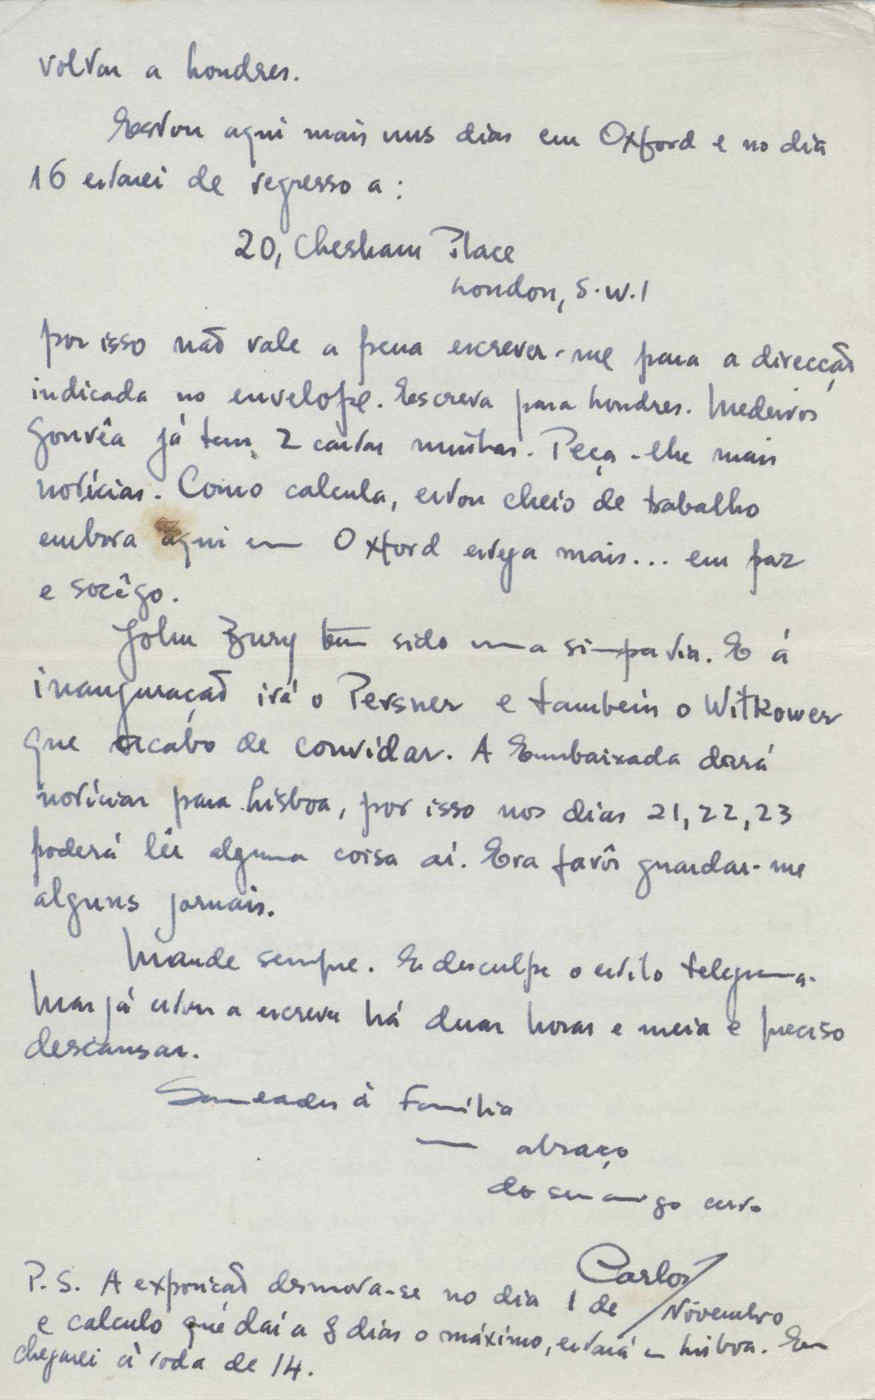 voltar a Londres.
Estou aqui mais uns dias em Oxford e no dia
16 estarei de regresso a:
20, Chesham Place
London, S.W.1
por isso não vale a pena escrever-me para a direcção
indicada no envelope. Escreva para Londres. Medeiros
Gouvêa já tem 2 cartas minhas. Peça-lhe mais
notícias. Como calcula, estou cheio de trabalho
embora aqui em Oxford esteja mais... em paz
e socêgo.
John Bury tem sido uma simpatia. E á
inauguração irá o Pevsner e tambem o Witkower
que acabo de convidar. A Embaixada dará
notícias para Lisboa, por isso nos dias 21, 22, 23
poderá lêr alguma coisa aí. Era favôr guardar-me
alguns jornais.
Mande sempre. E desculpe o estilo telegrama.
Mas já estou a escrever há duas horas e meia e preciso
descansar.
Saudades à Família
Um abraço
do seu amigo certo
Carlos
P.S. A exposição desmonta-se no dia 1 de Novembro
e calculo que daí a 8 dias o máximo, estará em Lisboa. Eu
chegarei à roda de 14.